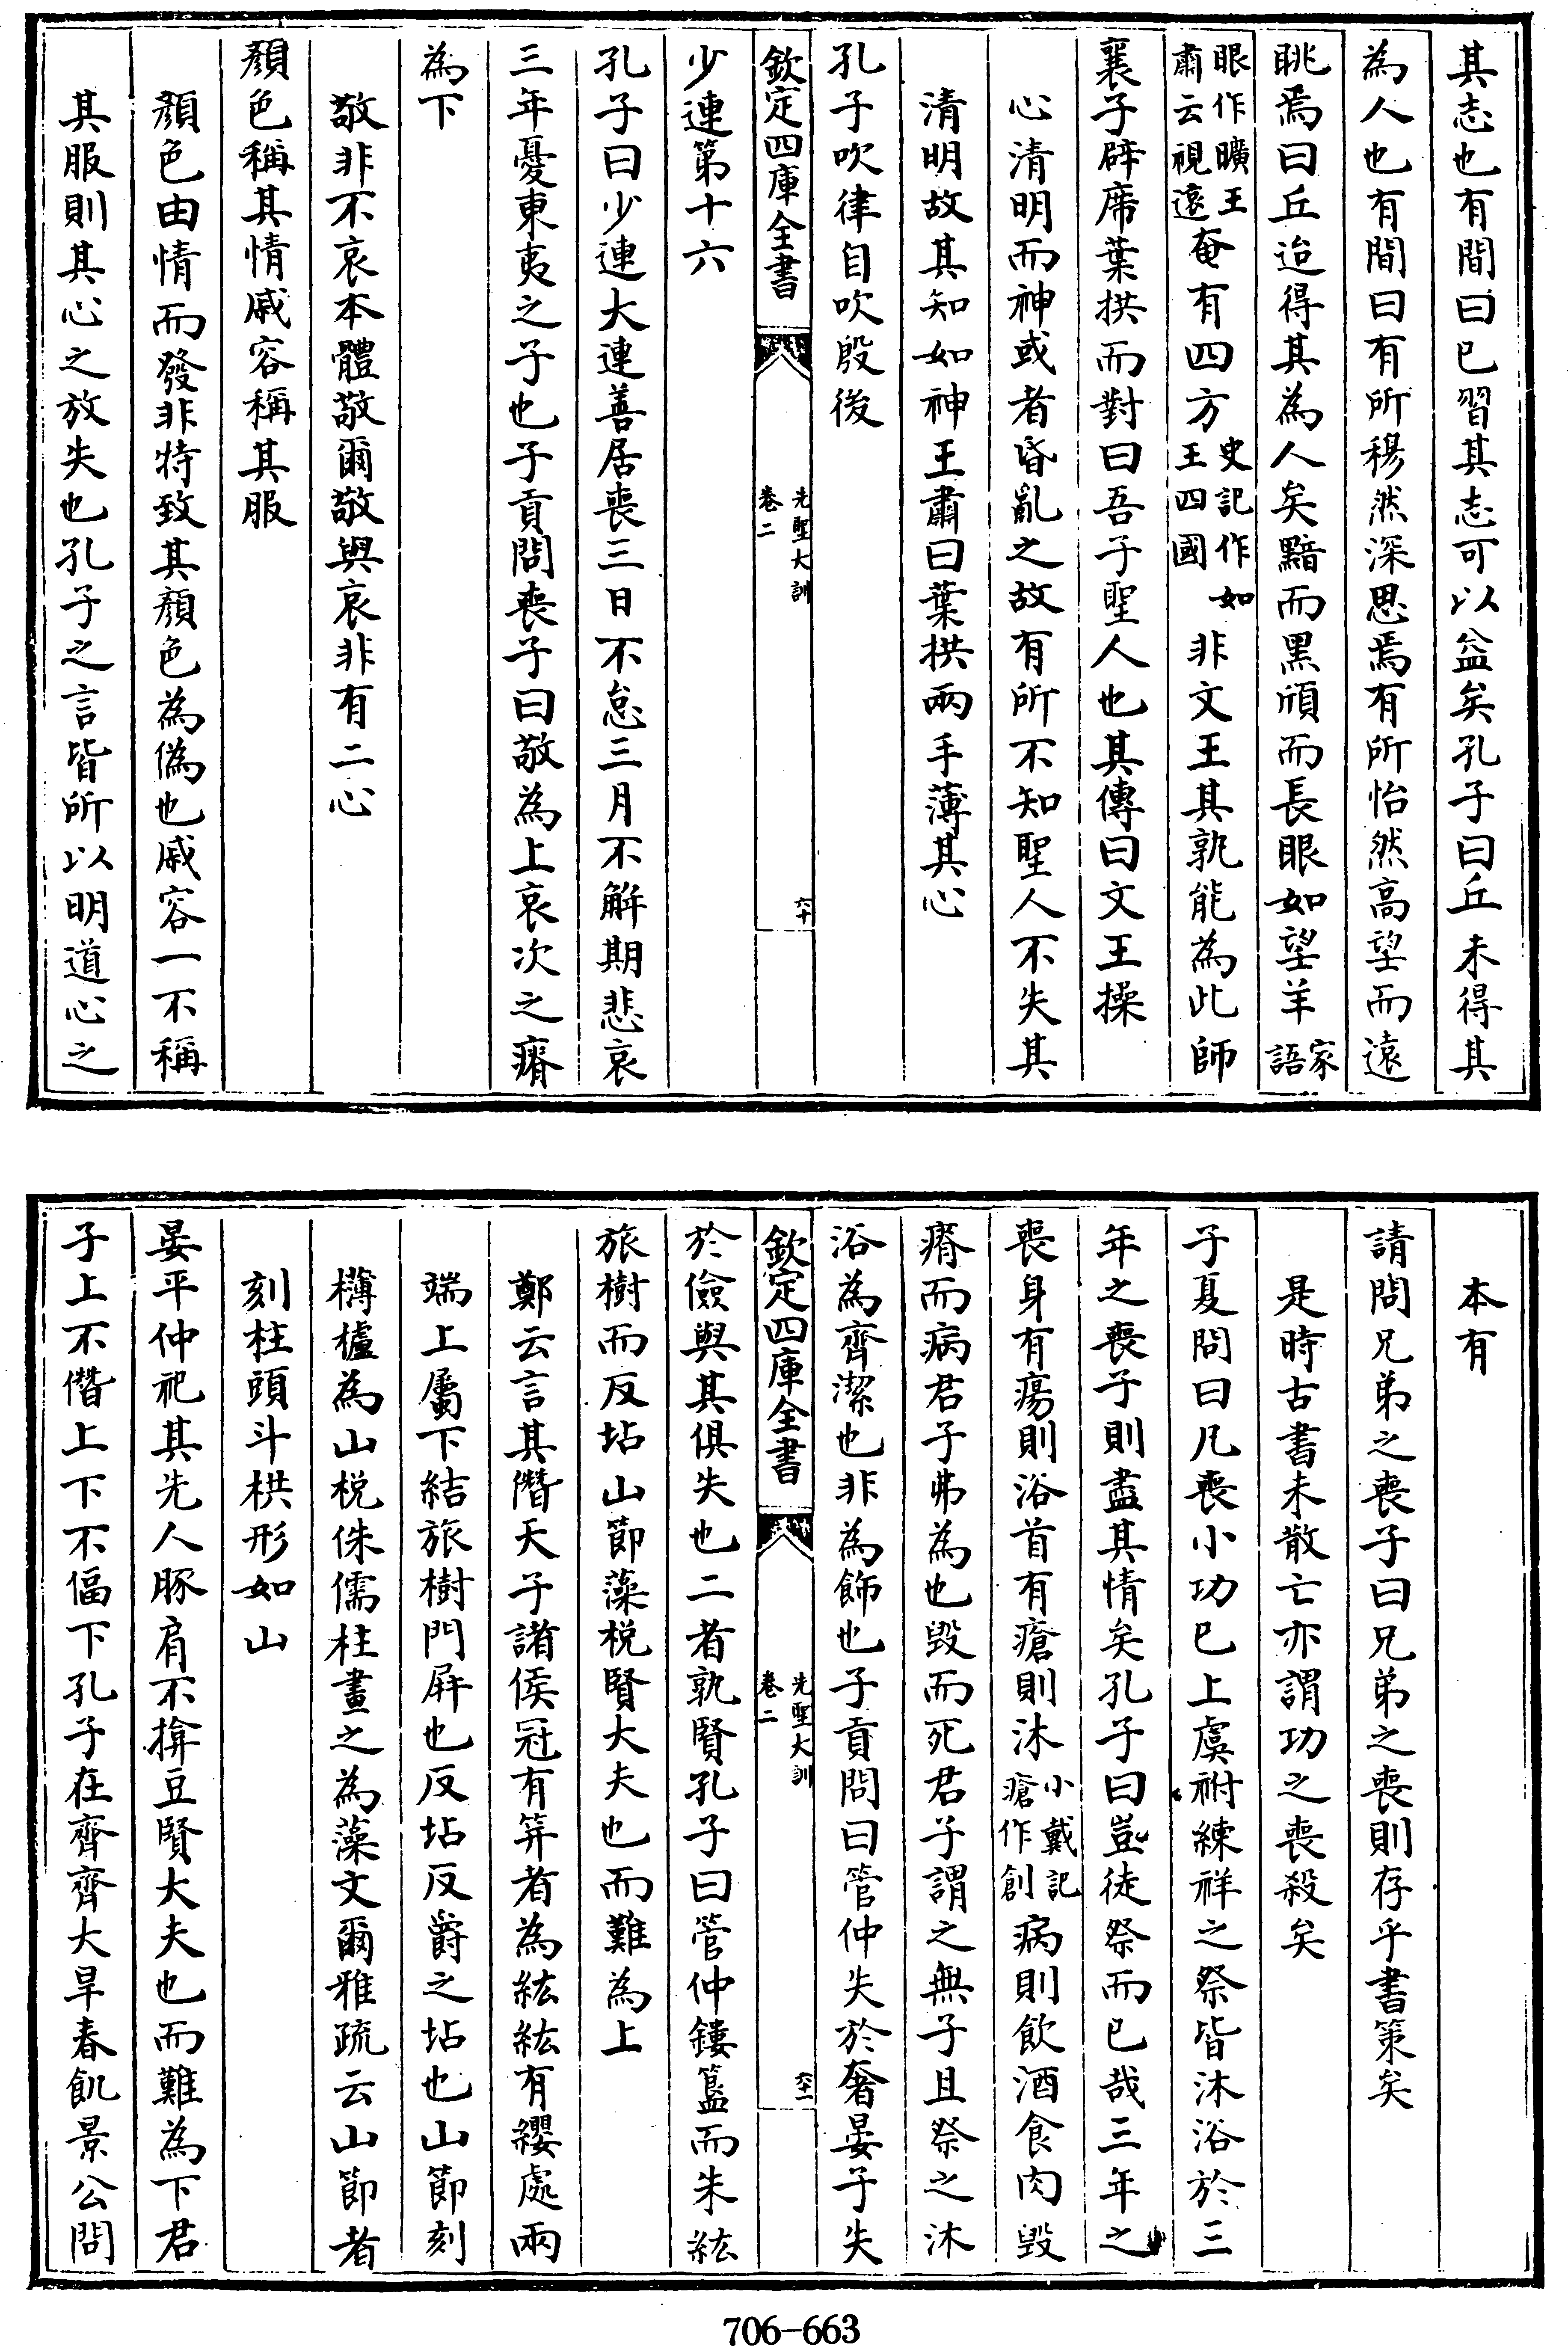 其志也有間曰已習其志可以益矣孔子曰丘未得其
為人也有間曰有所穆然深思焉有所怡然高望而遠
眺焉曰丘迨得其為人矣黯而黑頎而長眼如望羊家語
眼作曠王肅云視遠奄有四方史記作如王四國非文王其孰能為此師
襄子辟席葉拱而對曰吾子聖人也其傳曰文王操
心清明而神或者昏亂之故有所不知聖人不失其
清明故其知如神王肅曰葉拱兩手薄其心
孔子吹律自吹殷後
欽定四庫全書
先聖大訓
卷二
六十
少連第十六
孔子曰少連大連善居喪三日不怠三月不解期悲哀
三年憂東夷之子也子貢問喪子曰敬為上哀次之瘠
為下
敬非不哀本體敬爾敬與哀非有二心
顏色稱其情戚容稱其服
顏色由情而發非特致其顏色為偽也戚容一不稱
其服則其心之放失也孔子之言皆所以明道心之
本有
請問兄弟之喪子曰兄弟之喪則存乎書策矣
是時古書未散亡亦謂功之喪殺矣
子夏問曰凡喪小功已上虞祔練祥之祭皆沐浴於三
年之喪子則盡其情矣孔子曰豈徒祭而已哉三年之
喪身有瘍則浴首有瘡則沐小戴記瘡作創病則飲酒食肉毀
瘠而病君子弗為也毀而死君子謂之無子且祭之沐
浴為齊潔也非為飾也子貢問曰管仲失於奢晏子失
欽定四庫全書
先聖大訓
卷二
六十一
於儉與其俱失也二者孰賢孔子曰管仲鏤簋而朱紘
旅樹而反坫山節藻梲賢大夫也而難為上
鄭云言其僭天子諸侯冠有笄者為紘紘有纓處兩
端上屬下結旅樹門屏也反坫反爵之坫也山節刻
欂櫨為山梲侏儒柱畫之為藻文爾雅疏云山節者
刻柱頭斗栱形如山
晏平仲祀其先人豚肩不揜豆賢大夫也而難為下君
子上不僭上下不偪下孔子在齊齊大旱春飢景公問
706-663